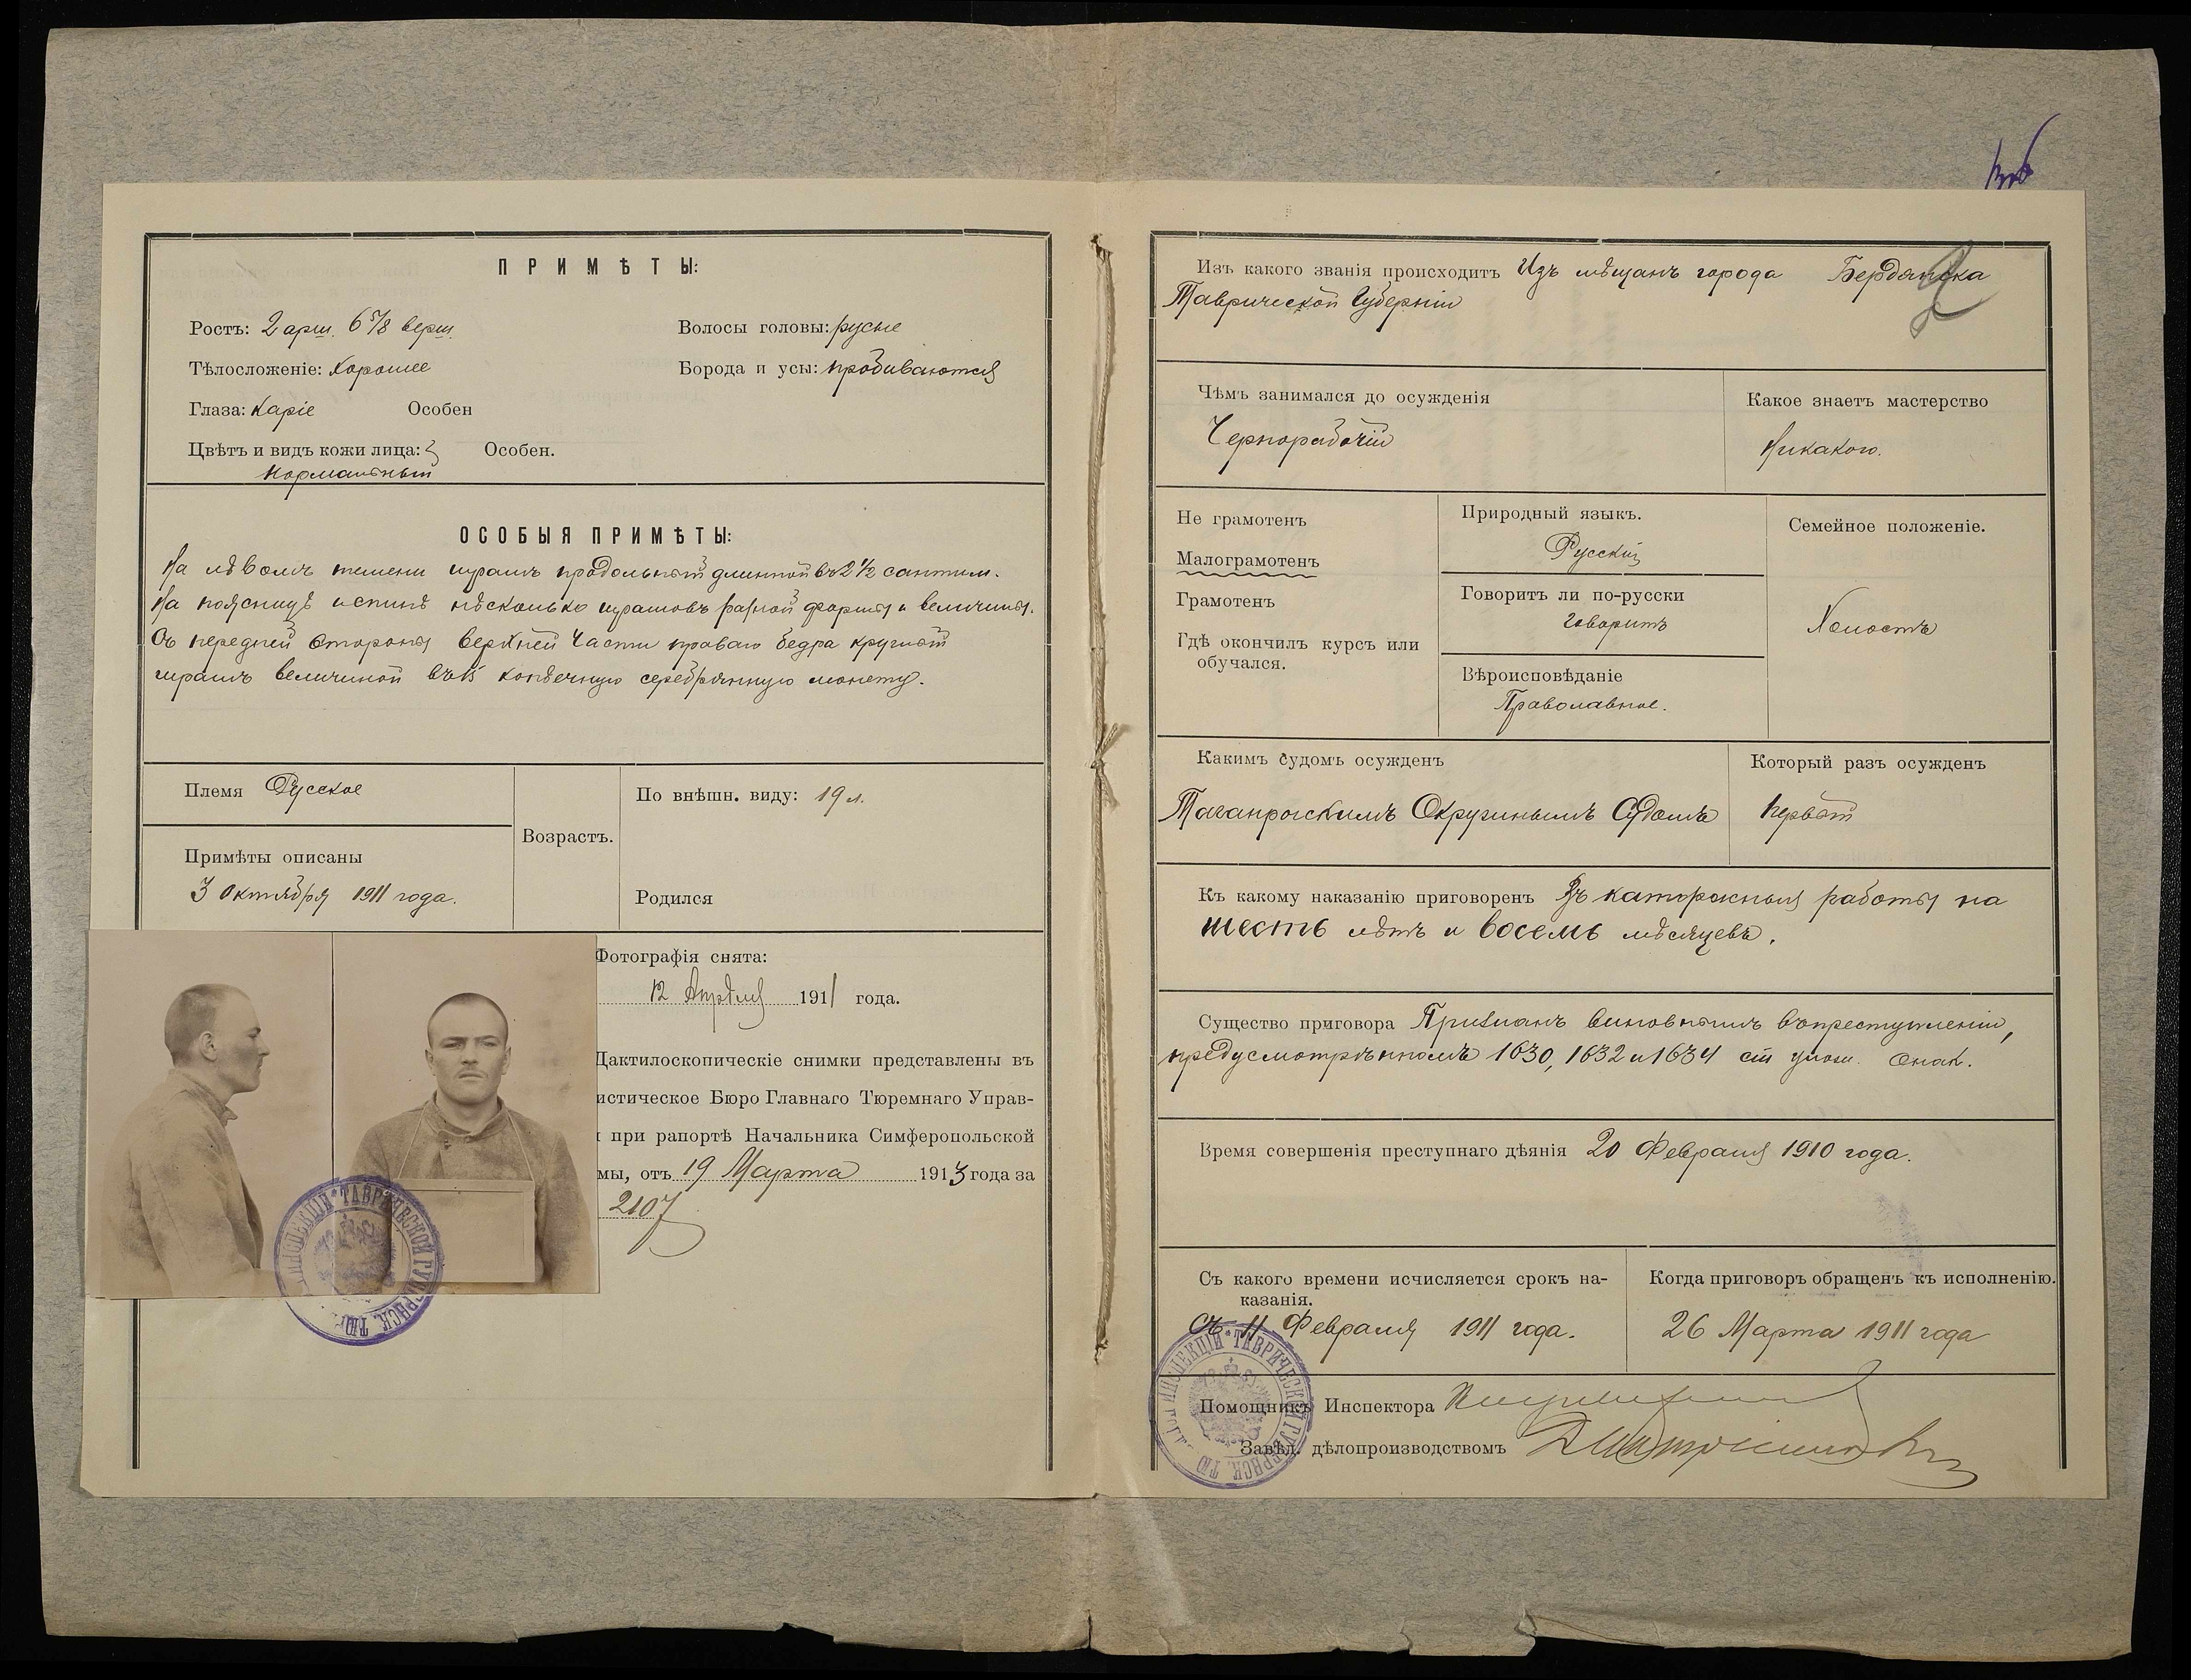 ПРИМѢТЫ:
Ростъ: 2 арш. 6 5/8 верш.
Волосы головы: русые
Тѣлосложеніе: Хорошее
Борода и усы: пробиваются
Глаза: Каріе Особен
Цвѣтъ и видъ кожи лица: Особен.
Нормальный
ОСОБЫЯ ПРИМѢТЫ:
На лѣвомъ темени шрамъ продольный длинной въ 2 1/2 сантим.
На поясницѣ и спинѣ нѣсколько шрамовъ разной формы и величины.
Съ передней стороны верхней части праваго бедра круглый
шрамъ величиной въ 15 копѣечную серебрянную монету.
Племя Русское
Возрастъ.
По внѣшн. виду: 19 л.
Примѣты описаны
3 Октября 1911 года.
Родился
Фотографія снята:
12 Апрѣля 1911 года.
Дактилоскопическіе снимки представлены въ
истическое Бюро Главнаго Тюремнаго Управ-
при рапортѣ Начальника Симферопольской
мы, отъ 19 Марта 1913 года за
2107
Изъ какого званія происходитъ Изъ мѣщанъ города Бердянска
Таврической Губерніи
Чѣмъ занимался до осужденія
Чернорабочій
Какое знаетъ мастерство
Никакого.
Не грамотенъ
Малограмотенъ
Грамотенъ
Гдѣ окончилъ курсъ или
обучался.
Природный языкъ.
Русскій
Говоритъ ли по-русски
Говоритъ
Вѣроисповѣданіе
Православное.
Семейное положеніе.
Холостъ
Какимъ судомъ осужденъ
Таганрогскимъ Окружнымъ Судомъ
Который разъ осужденъ
Первый
Къ какому наказанію приговоренъ Въ каторжныя работы на
шесть лѣтъ и восемь мѣсяцевъ.
Существо приговора Признанъ виновнымъ въ преступленіи,
предусмотрѣнномъ 1630, 1632 и 1634 ст улож. о нак.
Время совершенія преступнаго дѣянія 20 Февраля 1910 года.
Съ какого времени исчисляется срокъ на-
казанія.
Съ 11 Февраля 1911 года.
Когда приговоръ обращенъ къ исполненію.
26 Марта 1911 года
Помощникъ Инспектора
Завѣд. дѣлопроизводствомъ